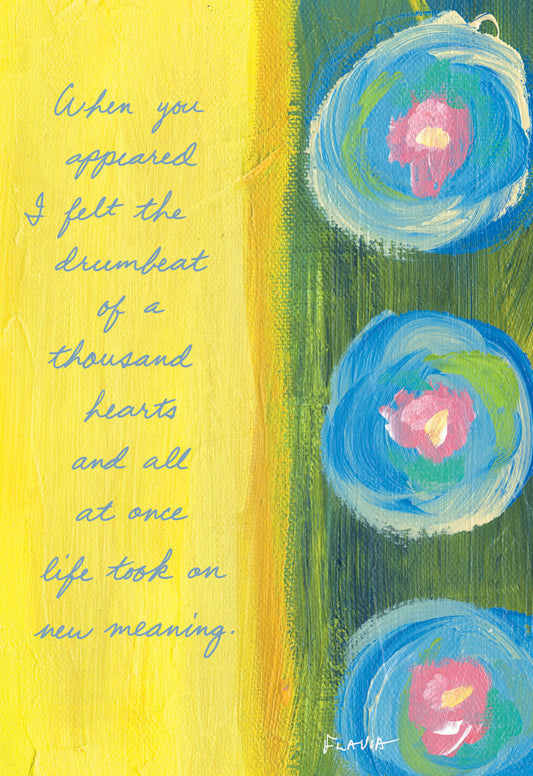 When you
appeared
I felt the
drumbeat
of a
thousand
hearts
and all
at once
life took on
new meaning.
FLAVIA